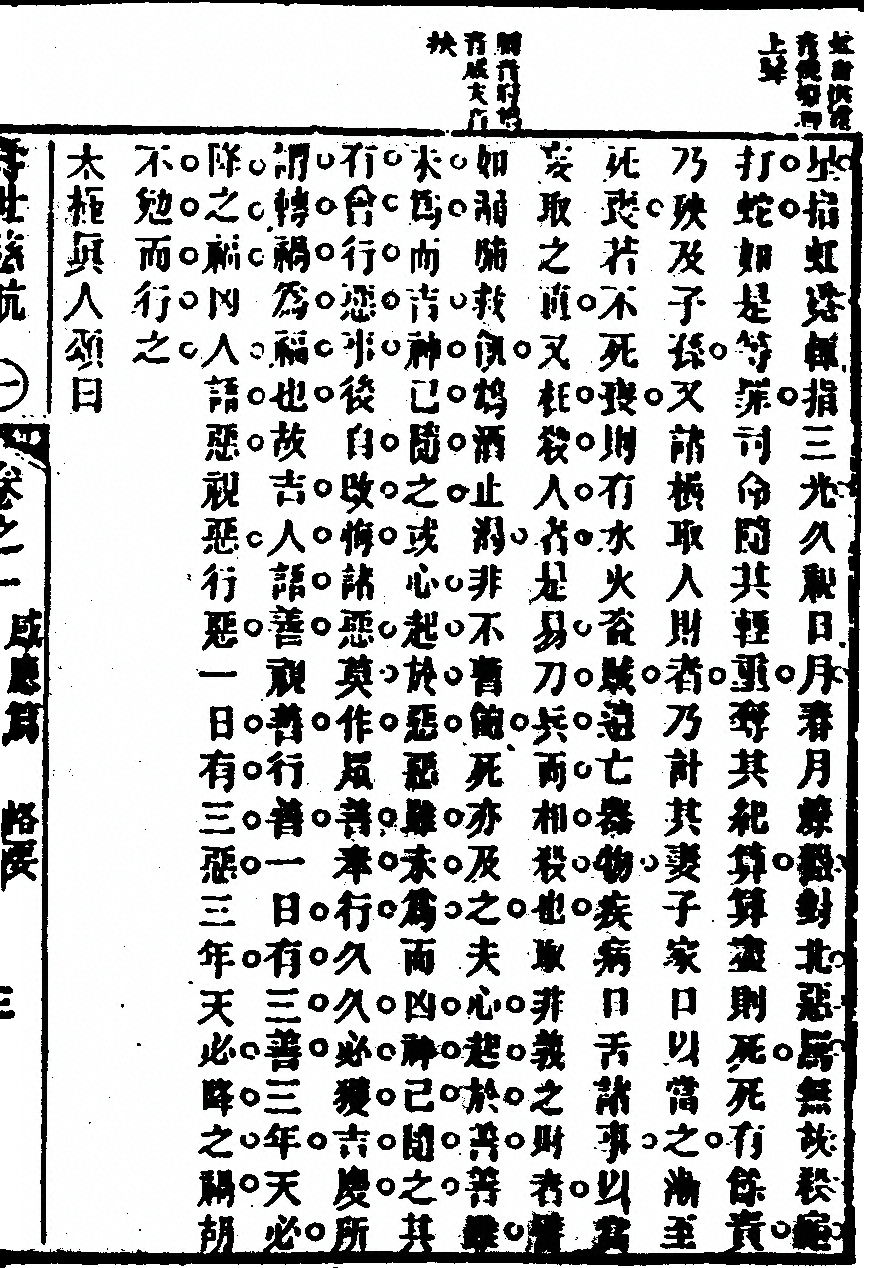 星指虹霓輒指三光久視日月春月燎獵對北惡罵無故殺龜
打蛇如是等罪司命隨其輕重奪其紀算算盡則死死有餘責
乃殃及子孫又諸橫取人財者乃計其妻子家口以當之漸至
死喪若不死喪則有水火盜賊遺亡器物疾病口舌諸事以當
妄取之直又枉殺人者是易刀兵而相殺也取非義之財者譬
如漏脯救飢鴆酒止渴非不暫飽死亦及之夫心起於善善雖
未為而吉神已隨之或心起於惡惡雖未為而凶神已隨之其
有曾行惡事後自改悔諸惡莫作眾善奉行久久必獲吉慶所
謂轉禍為福也故吉人語善視善行善一日有三善三年天必
降之福凶人語惡視惡行惡一日有三惡三年天必降之禍胡
不勉而行之
太極眞人頌曰
卷之一
感應篇
三